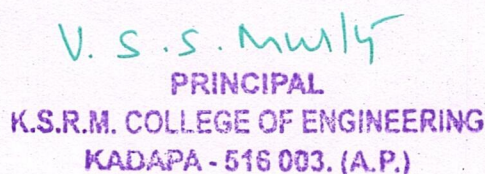 V. S. S. Murly
PRINCIPAL
K.S.R.M. COLLEGE OF ENGINEERING
KADAPA - 516 003. (A.P.)